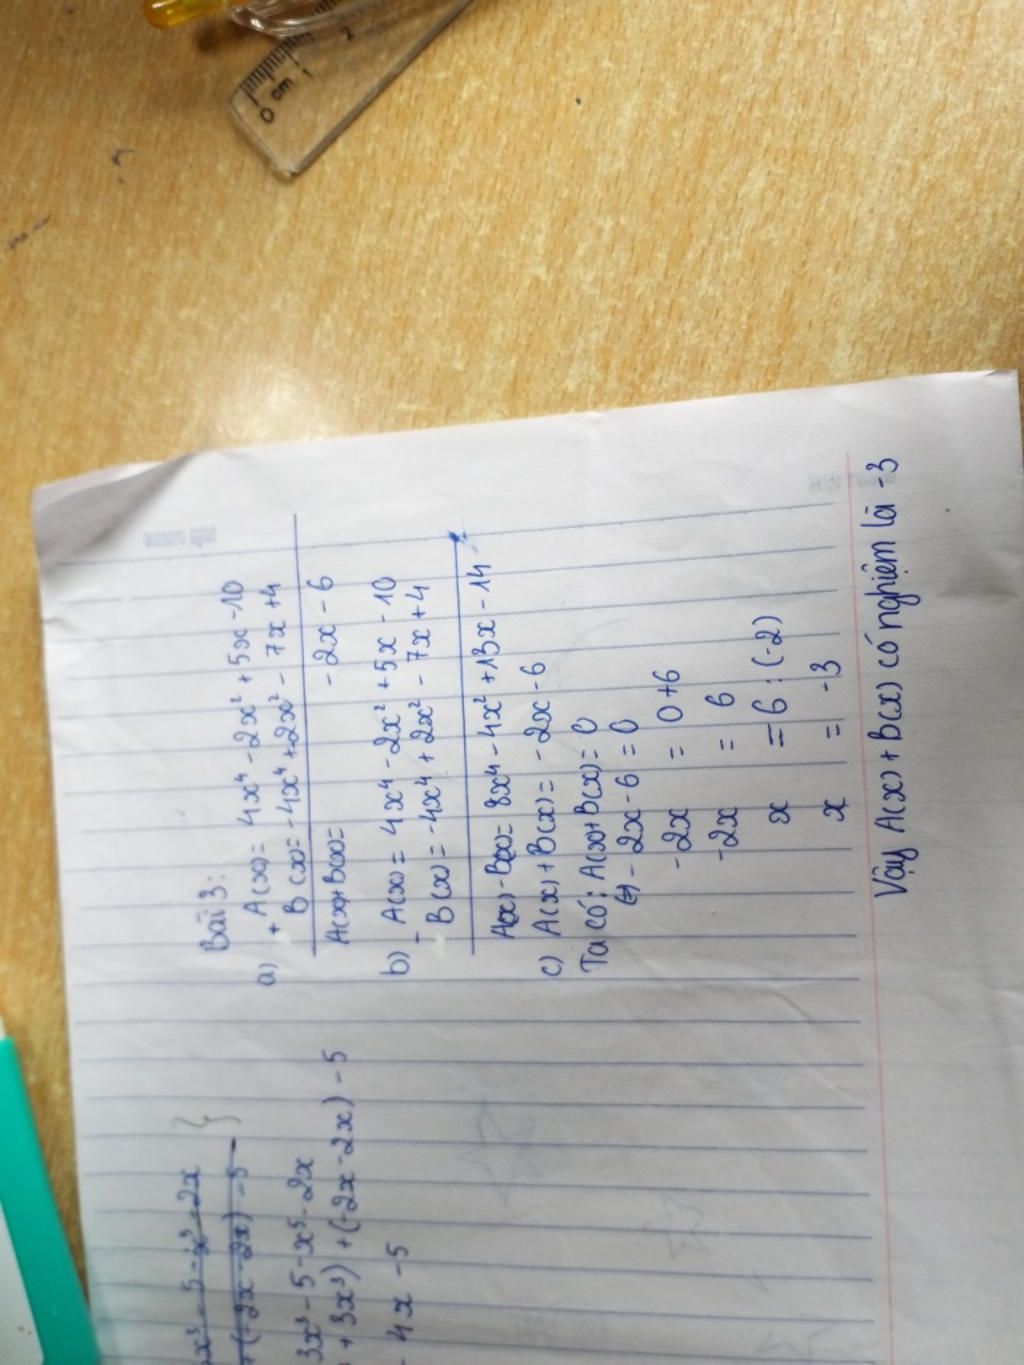 0 cm 1 2
x³ - 5 - x³ - 2x
+ (-2x - 2x) - 5
3x³ - 5 - x⁵ - 2x
+ 3x³) + (-2x - 2x) - 5
- 4x - 5
Bài 3:
a) + A(x) = 4x⁴ - 2x² + 5x - 10
B(x) = -4x⁴ + 2x² - 7x + 4
A(x)+B(x) = -2x - 6
b) - A(x) = 4x⁴ - 2x² + 5x - 10
B(x) = -4x⁴ + 2x² - 7x + 4
A(x) - B(x) = 8x⁴ - 4x² + 13x - 14
c) A(x) + B(x) = - 2x - 6
Ta có: A(x)+B(x) = 0
- 2x - 6 = 0
- 2x = 0 + 6
- 2x = 6
x = 6 : (-2)
x = -3
Vậy A(x) + B(x) có nghiệm là -3